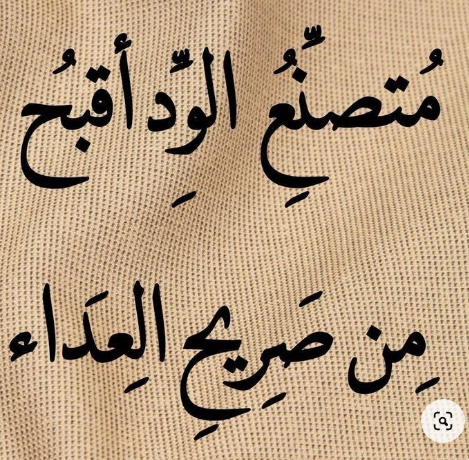 مُتصنِّعُ الوِّد أقبحُ
مِن صَرِيحِ العِدَاء